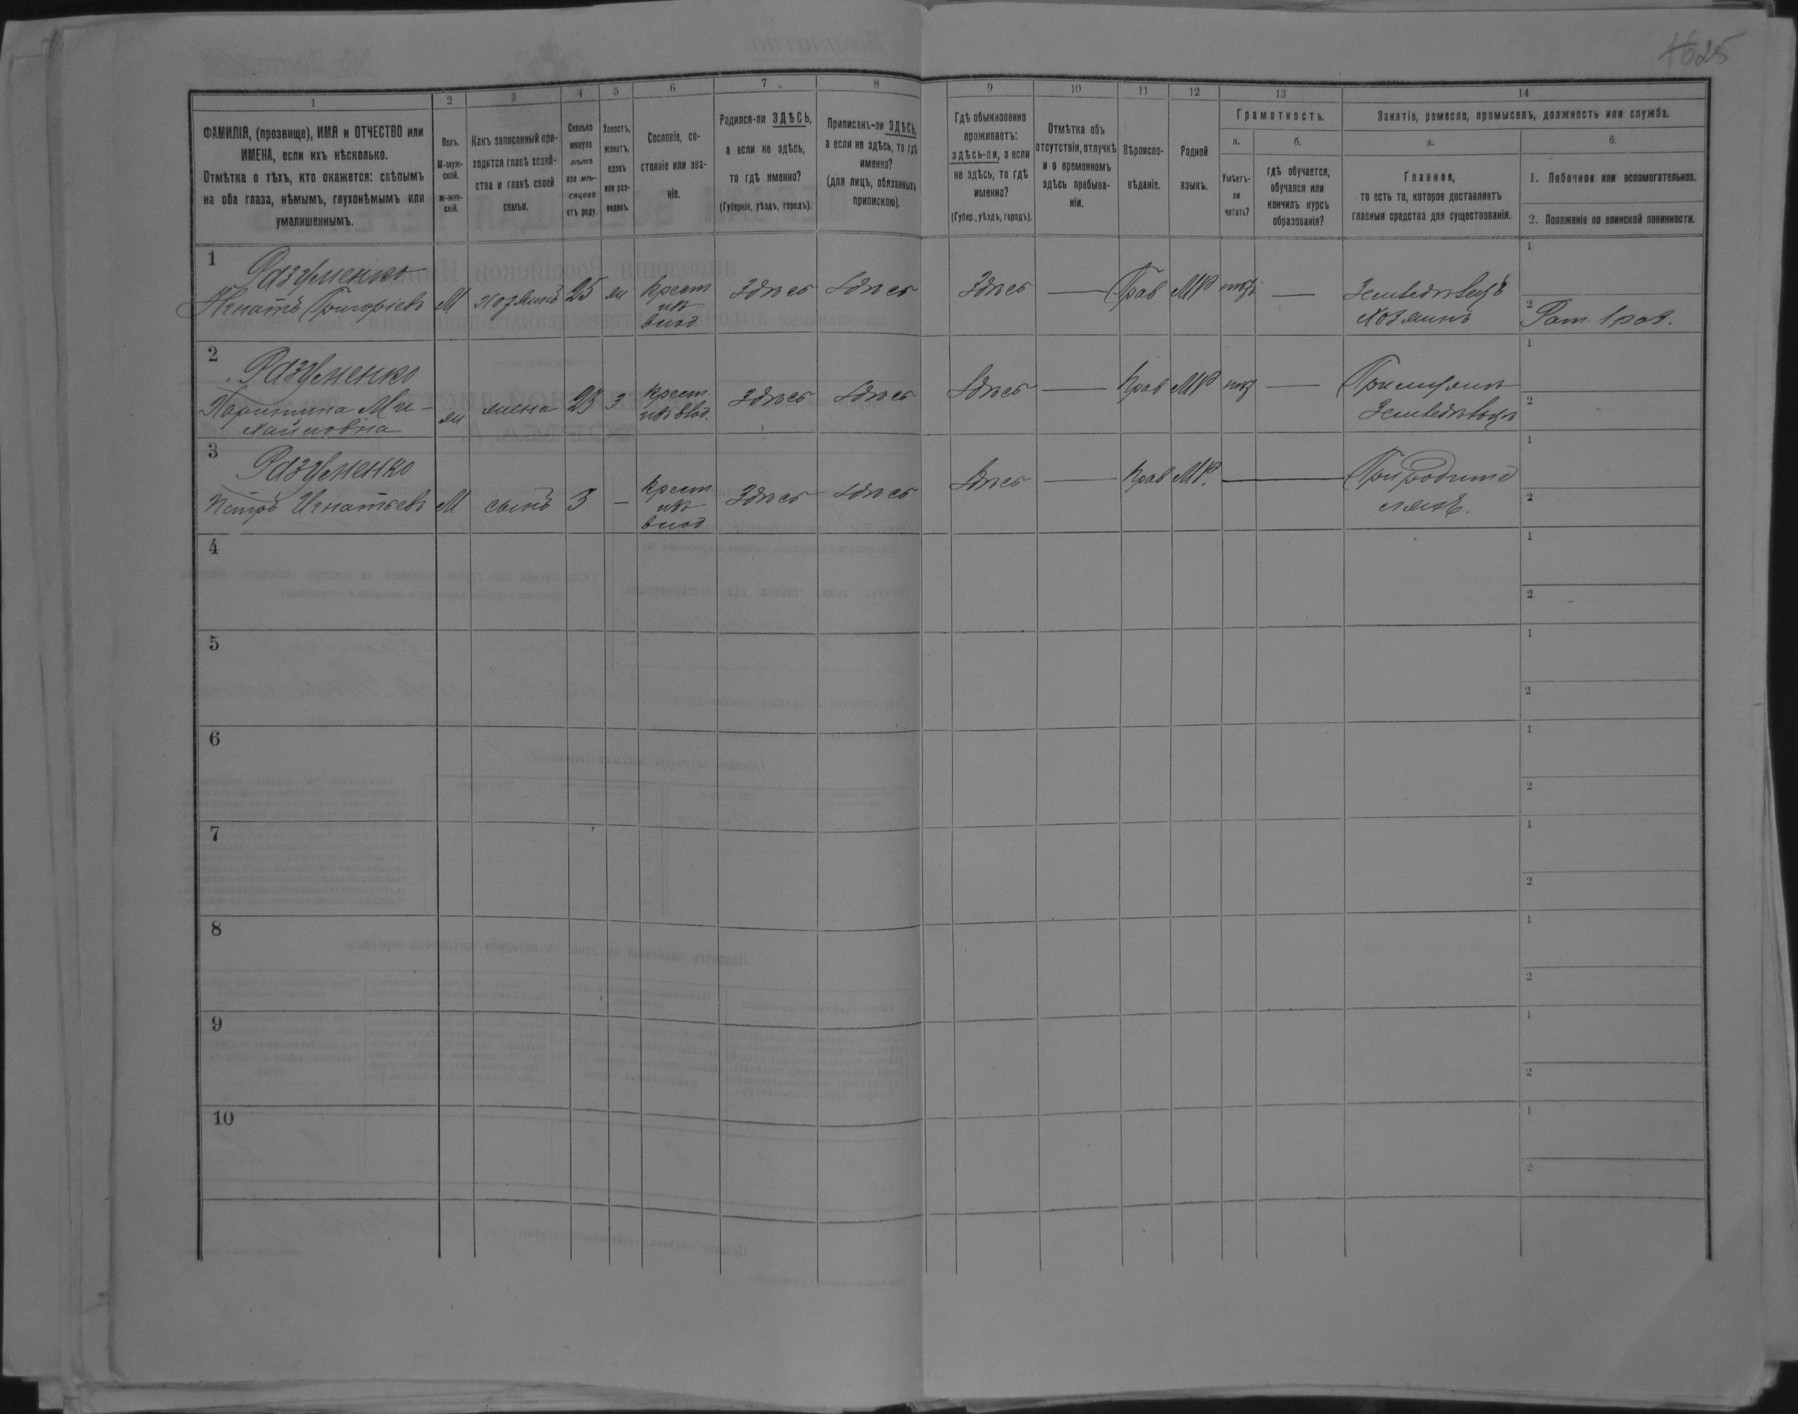 1625
1 2 3 4 5 6 7 8 9 10 11 12 13 14
ФАМИЛІЯ, (прозвище), ИМЯ и ОТЧЕСТВО или
ИМЕНА, если ихъ нѣсколько.
Отмѣтка о тѣхъ, кто окажется: слѣпымъ
на оба глаза, нѣмымъ, глухонѣмымъ или
умалишеннымъ.
Полъ.
М-муж-
ской.
ж-жен-
скій.
Какъ записанный при-
ходится главѣ хозяй-
ства и главѣ своей
семьи.
Сколько
минуло
лѣтъ
или мѣ-
сяцевъ
отъ роду.
Холостъ,
женатъ,
вдовъ
или раз-
веденъ.
Сословіе, со-
стояніе или зва-
ніе.
Родился-ли ЗДѢСЬ,
а если не здѣсь,
то гдѣ именно?
(Губернія, уѣздъ, городъ).
Приписанъ-ли ЗДѢСЬ,
а если не здѣсь, то гдѣ
именно?
(для лицъ, обязанныхъ
припискою).
Гдѣ обыкновенно
проживаетъ:
ЗДѢСЬ-ЛИ, а если
не здѣсь, то гдѣ
именно?
(Губер., уѣздъ, городъ).
Отмѣтка объ
отсутствіи, отлучкѣ
и о временномъ
здѣсь пребыва-
ніи.
Вѣроиспо-
вѣданіе.
Родной
языкъ.
Грамотность.
а.
Умѣетъ-
ли
читать?
б.
гдѣ обучается,
обучался или
кончилъ курсъ
образованія?
Занятіе, ремесло, промыселъ, должность или служба.
а.
Главное,
то есть то, которое доставляетъ
главныя средства для существованія.
б.
1. Побочное или вспомогательное.
2. Положеніе по воинской повинности.
1
Разуменко
Игнатъ Григоріевъ М хозяинъ 25 ж Крест
изъ
влад
Здѣсь Здѣсь Здѣсь — Прав МР нѣтъ —
Земледѣлецъ
Хозяинъ
1
2 Рат. 1 раз.
2
Разуменко
Харитина Ми-
хайловна ж жена 23 з крест.
изъ влад.
Здѣсь Здѣсь Здѣсь — Прав МР нѣтъ —
При мужѣ
Земледѣлецъ
1
2
3
Разуменко
Петръ Игнатьевъ М сынъ 3 — Крест
изъ
влад
Здѣсь Здѣсь Здѣсь — Прав МР. —
При родите
ляхъ.
1
2
4
1
2
5
1
2
6
1
2
7
1
2
8
1
2
9
1
2
10
1
2